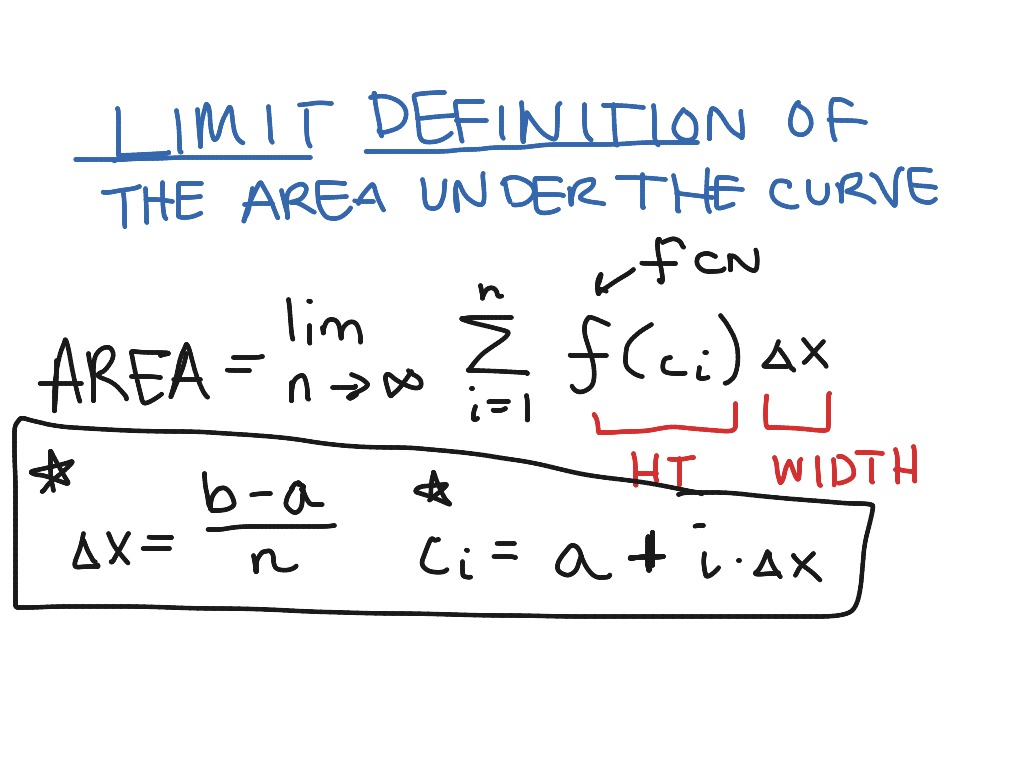 LIMIT DEFINITION OF
THE AREA UNDER THE CURVE
fCN
AREA = lim n→∞ n Σ i=1 f(ci) Δx
HT WIDTH
☆ Δx = b-a / n ☆ ci = a + i·Δx